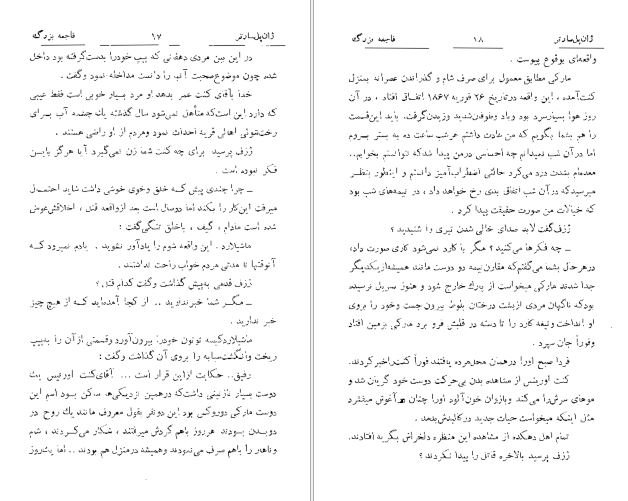 ژان‌پل‌سارتر ۱۷ فاجعه بزرگ
در این بین مردی دهقانی که پیپ خودرا بدست‌گرفته بود داخل
شده چون موضوع‌صحبت آنها را دانست مداخله نمود وگفت .
خدا بآقای کنت عمر بدهد او مرد بسیار خوبی است فقط عیبی
که دارد این است‌که‌متأهل نمی‌شود سال گذشته یك چشمه آب برای
رخت‌شوئی اهالی قریه احداث نمود ومردم از او راضی هستند .
ژزف پرسید برای چه کنت شما زن نمی‌گیرد آیا هرگز باین
فکر نبوده است
ــ چرا چندی پیش که خلق وخوی خوشی داشت شاید احتمال
میرفت این‌کار را بکند اما دوسال است بعد ازواقعه قتل ، اخلاقش‌عوض
شده است مادام ، گیف ، باخلق تنگی‌گفت :
ماشیلارد . این واقعه شوم را یادآور نشوید . یادم نمیرود که
آنوقتها تا مدتی مردم خواب راحت نداشتند .
ژزف قدمی به‌پیش گذاشت وگفت کدام قتل ؟
ــ مگر شما خبرندارید .. از کجا آمده‌اید که از هیچ چیز
خبر ندارید .
ماشیلاردکیسه توتون خودرا بیرون‌آورد وقسمتی از آن را به‌پیپ
ریخت وانگشت‌سبابه را بروی آن گذاشت وگفت :
رفیق.. حکایت ازاین قرار است ... آقای‌کنت اورتیس یك
دوست بسیار نازنینی داشت‌که درهمین نزدیکی‌ها ساکن بود اسم این
دوست مارکی دوروکس بود این دونفر بقول معروف مانند یك روح در
دوبدن بودند هرروز باهم گردش میرفتند ، شکار می‌کردند ، شام
وناهار را باهم صرف می‌نمودند وهمیشه درمنزل هم بودند .. اما یك‌روز
ژان‌پل‌سارتر ۱۸ فاجعه بزرگ
واقعه‌ای بوقوع پیوست .
مارکی مطابق معمول برای صرف شام و گذراندن عصرانه بمنزل
کنت‌آمده ، این واقعه درتاریخ ۲۶ فوریه ۱۸۶۷ اتفاق افتاد ، در آن
روز هوا بسیارسرد بود وباد وطوفان‌شدید وزیدن‌گرفت. باید این‌قسمت
را هم بشما بگویم که من عادت داشتم هرشب ساعت ده به بستر بسروم
اما در آن شب نمیدانم چه احساسی درمن پیدا شدکه نتوانستم بخوابم..
معده‌ام بشدت درد میکرد حالتی اضطراب‌آمیز داشتم و اینطور بنظر
میرسیدکه در آن شب اتفاق بدی رخ خواهد داد ، در نیمه‌های شب بود
که خیالات من صورت حقیقت پیدا کرد .
ژزف‌گفت لابد صدای خالی شدن تیری را شنیدید ؟
ــ چه فکرها می‌کنید ؟ مگر با کارد نمی‌شود کاری صورت داد؛
درهرحال بشما می‌گفتم‌که مقارن‌نیمه دو دوست مانند همیشه‌از یکدیگر
جدا شدند مارکی میخواست از پارك خارج شود و هنوز سرپل نرسیده
بودکه ناگهان مردی ازپشت درختان بلوط بیرون جست وخود را بروی
او انداخت وتیغه کارد را تا دسته در قلبش فرو برد مارکی بزمین افتاد
وفوراً جان سپرد .
فردا صبح اورا درهمان محل‌مرده یافتند فوراً کنت‌را خبرکردند.
کنت اورتیس از مشاهده بدن بی‌حرکت دوست خود گریان شد و
موهای سرش را می‌کند وبازوان خون‌آلود اورا چنان در آغوش میفشرد
مثل اینکه میخواست حیات جدید درکالبدش‌بدمد .
تمام اهل دهکده از مشاهده این منظره دلخراش بگریه افتادند.
ژزف پرسید بالاخره قاتل را پیدا نکردند ؟